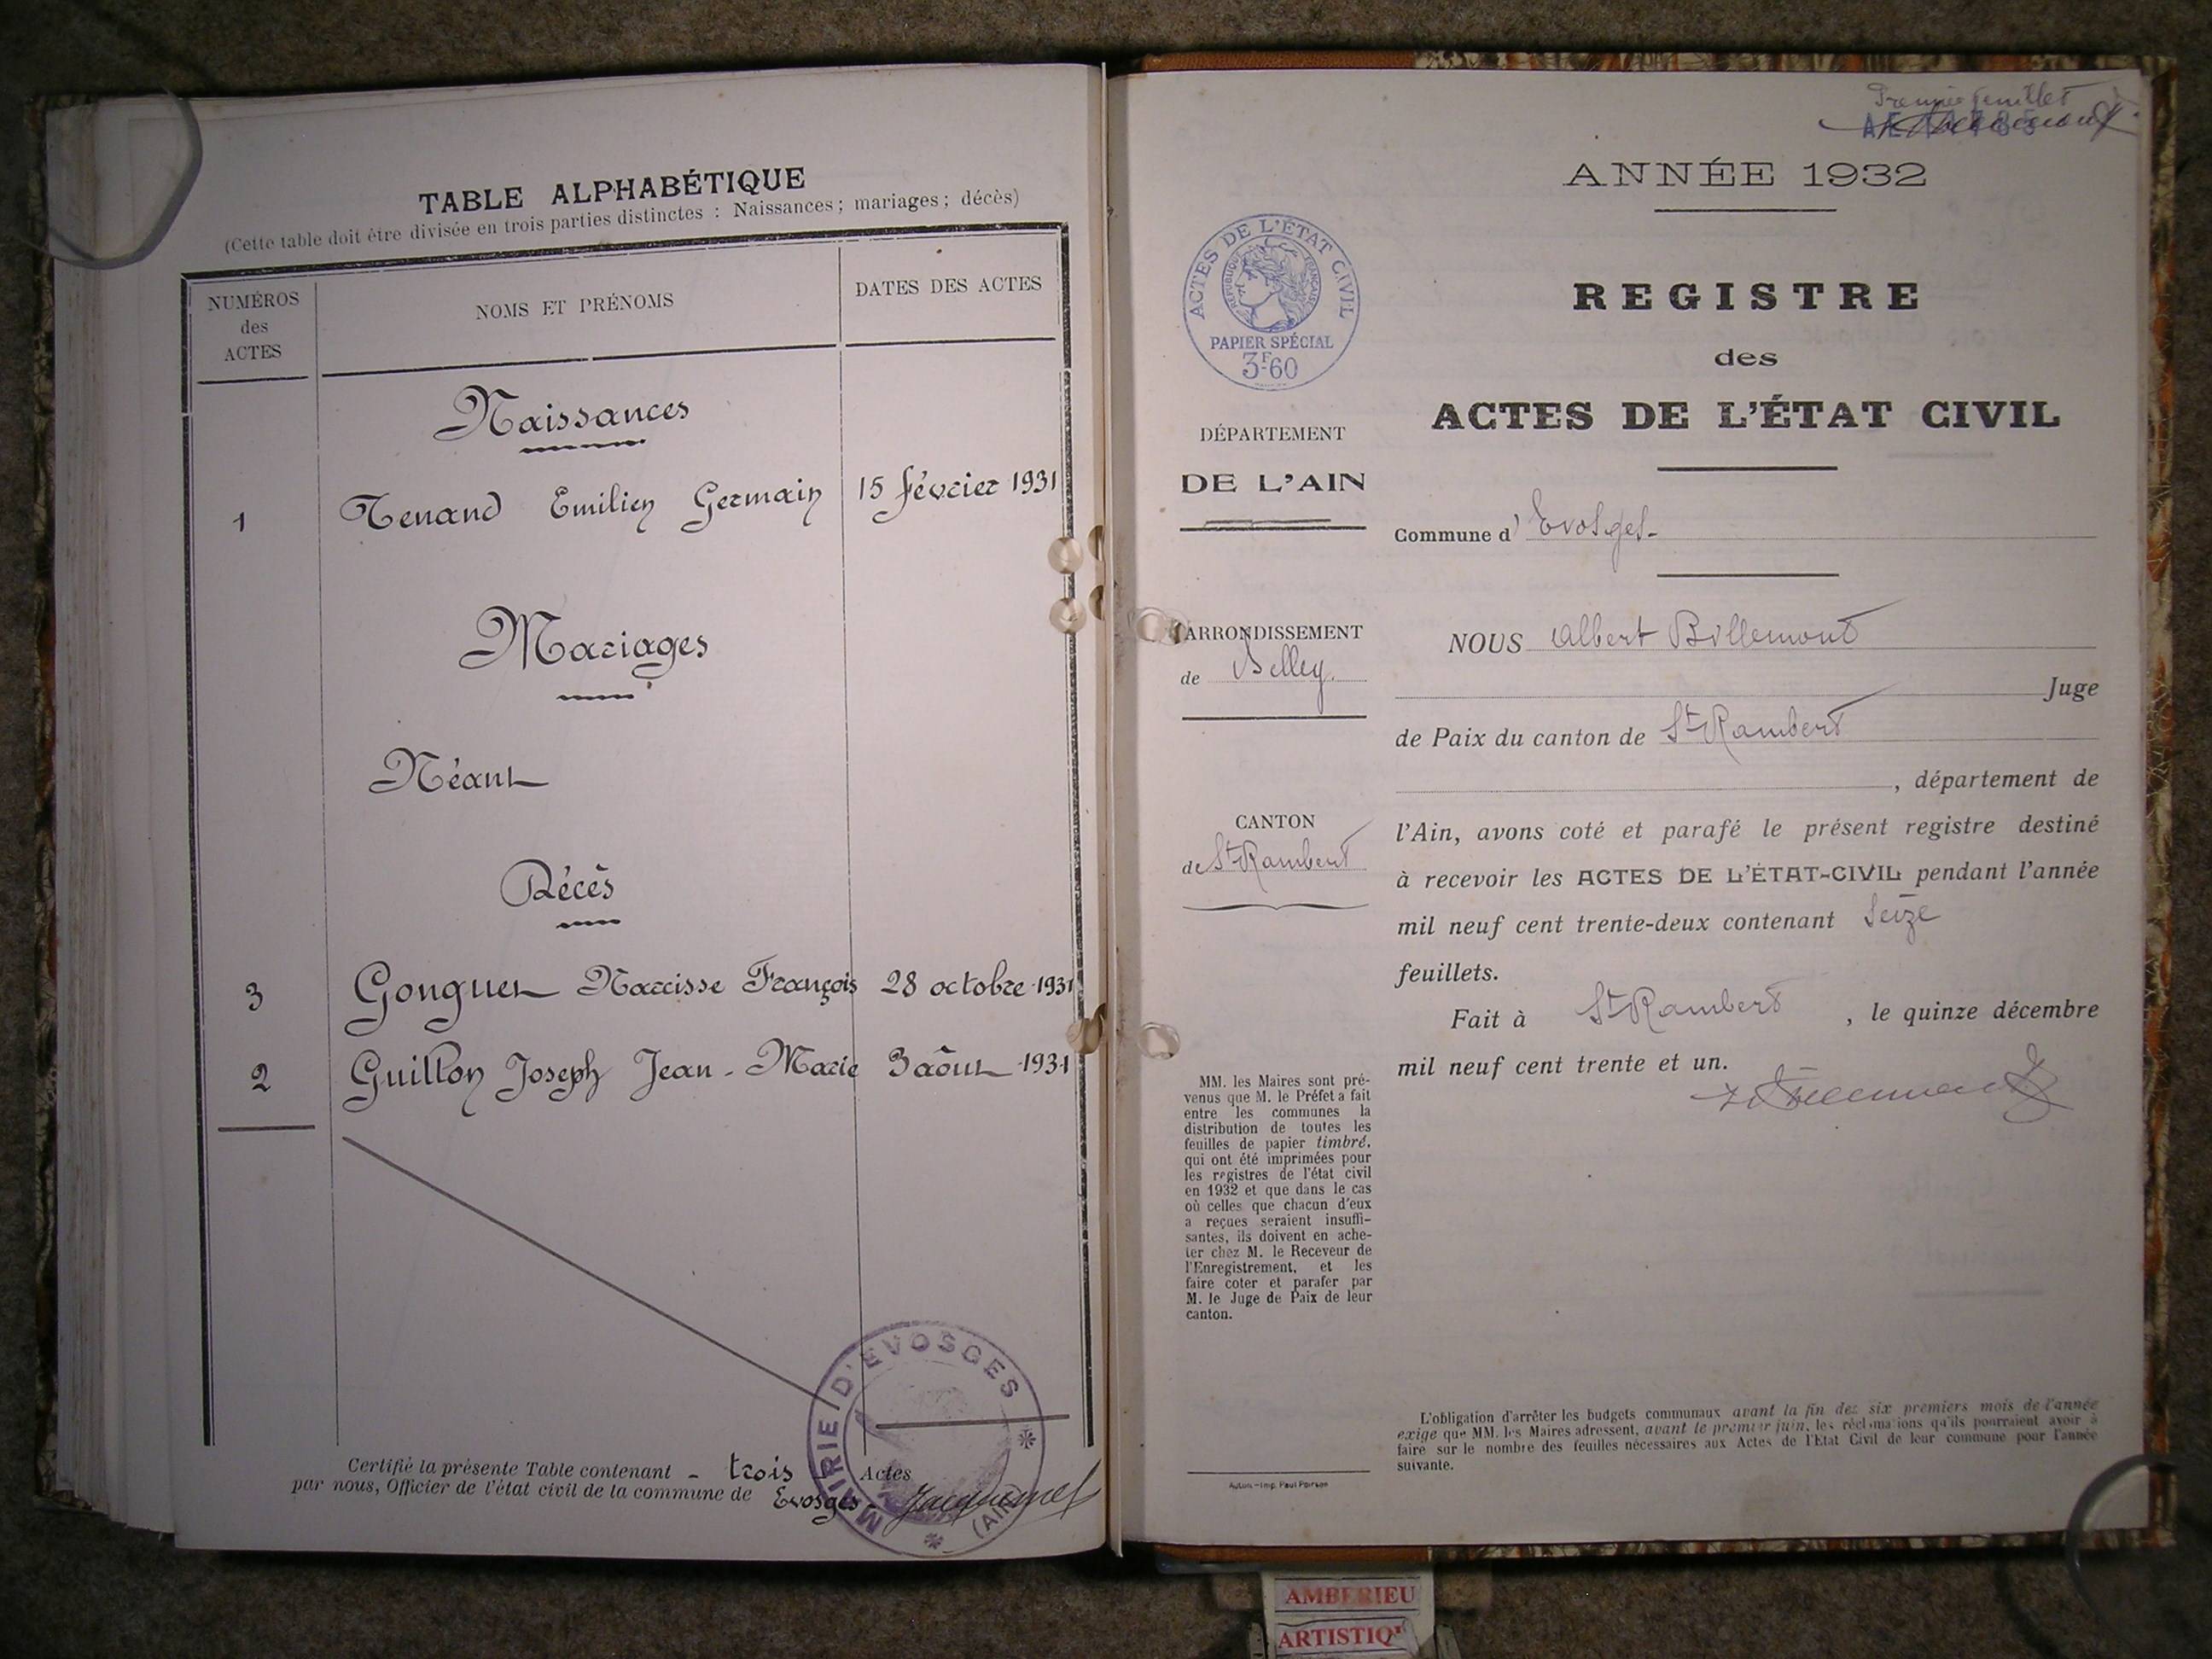 TABLE ALPHABÉTIQUE
(Cette table doit être divisée en trois parties distinctes : Naissances ; mariages ; décès)
NUMÉROS
des
ACTES
NOMS ET PRÉNOMS
DATES DES ACTES
Naissances
1 Tenand Emilien Germain 15 février 1931
Mariages
Néant
Décès
3 Gonguet Narcisse François 28 octobre 1931
2 Guillon Joseph Jean-Marie 3 aôut 1931
Certifié la présente Table contenant - trois - Actes
par nous, Officier de l'état civil de la commune de Evosges
MAIRIE D'EVOSGES
(AIN)
Premier feuillet
ANNÉE 1932
REGISTRE
des
ACTES DE L'ÉTAT CIVIL
ACTES DE L'ÉTAT CIVIL
RÉPUBLIQUE FRANÇAISE
PAPIER SPÉCIAL
3F60
DÉPARTEMENT
DE L'AIN
ARRONDISSEMENT
de Belley.
CANTON
de St Rambert
MM. les Maires sont pré-
venus que M. le Préfet a fait
entre les communes la
distribution de toutes les
feuilles de papier timbré,
qui ont été imprimées pour
les registres de l'état civil
en 1932 et que dans le cas
où celles que chacun d'eux
a reçues seraient insuffi-
santes, ils doivent en ache-
ter chez M. le Receveur de
l'Enregistrement, et les
faire coter et parafer par
M. le Juge de Paix de leur
canton.
Autun. - Imp. Paul Poirson
Commune d' Evosges-
NOUS Albert Billemont
Juge
de Paix du canton de St Rambert
, département de
l'Ain, avons coté et parafé le présent registre destiné
à recevoir les ACTES DE L'ÉTAT-CIVIL pendant l'année
mil neuf cent trente-deux contenant Seize
feuillets.
Fait à St Rambert , le quinze décembre
mil neuf cent trente et un.
L'obligation d'arrêter les budgets communaux avant la fin des six premiers mois de l'année
exige que MM. les Maires adressent, avant le premier juin, les réclamations qu'ils pourraient avoir à
faire sur le nombre des feuilles nécessaires aux Actes de l'Etat Civil de leur commune pour l'année
suivante.
AMBERIEU
ARTISTIQ